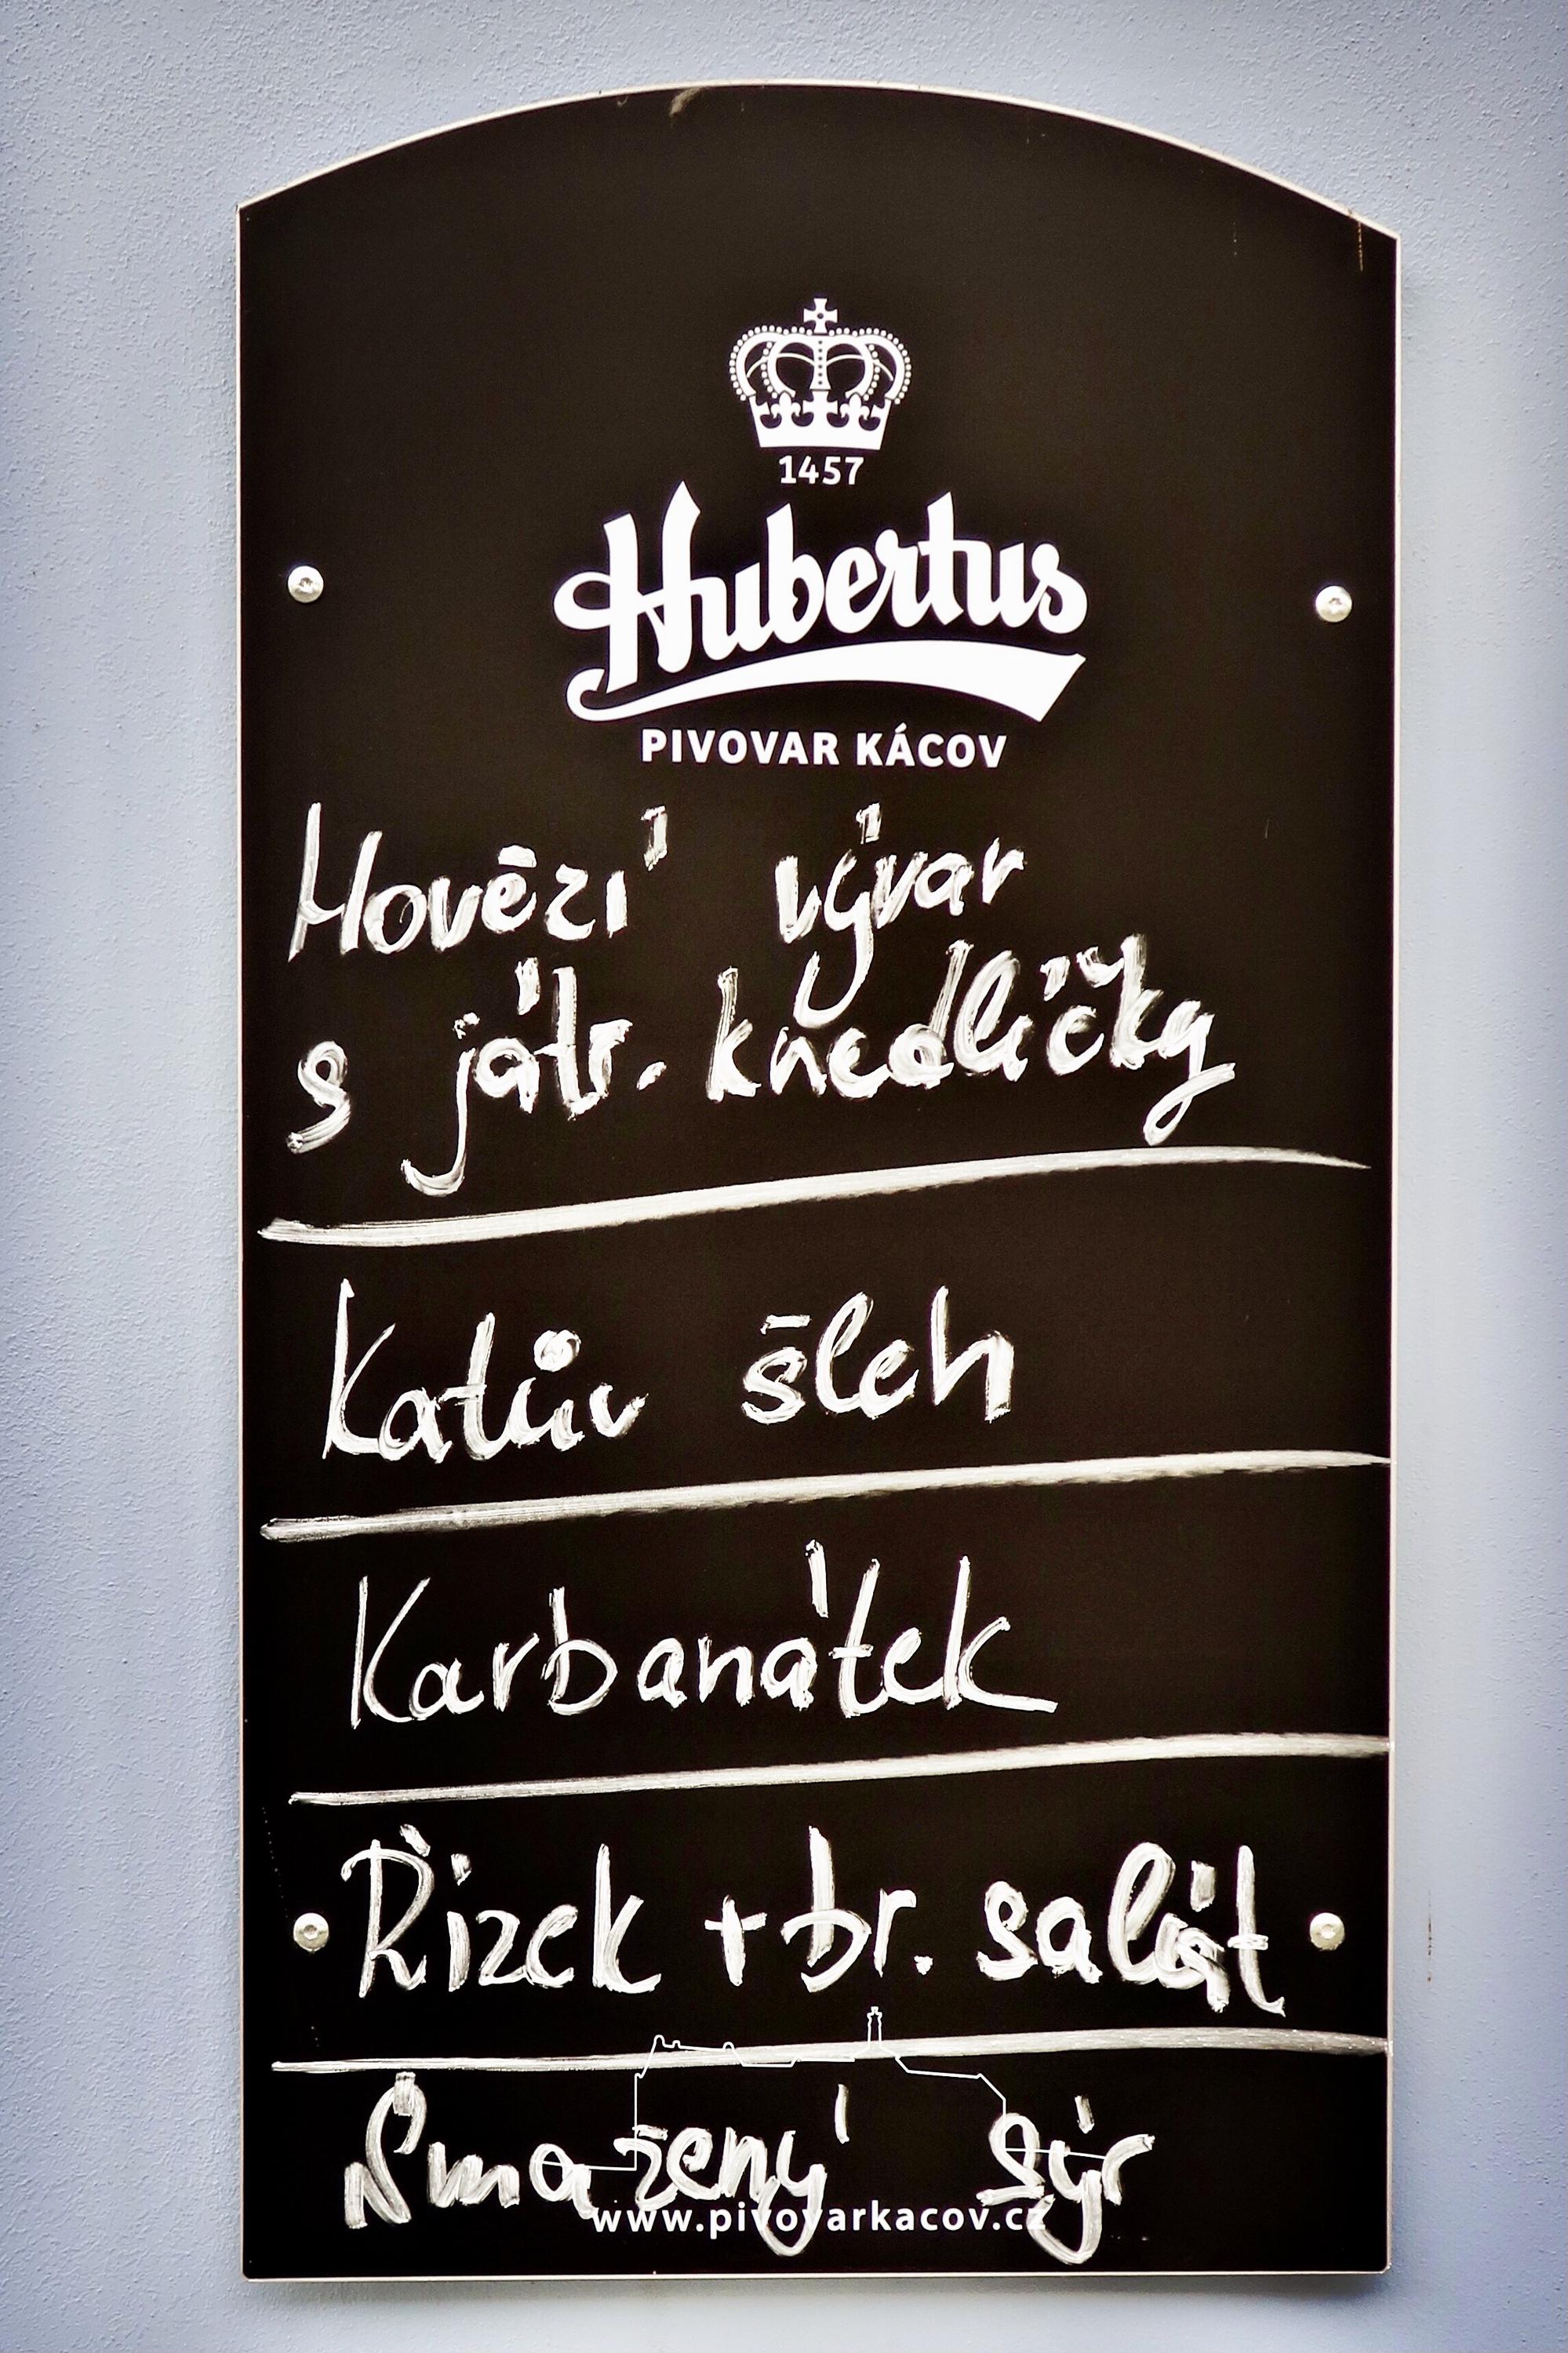 1457
Hubertus
PIVOVAR KÁCOV
Hovězí vývar
s játr. knedlíčky
Katův šleh
Karbanátek
Řízek + br. salát
Smažený sýr
www.pivovarkacov.cz